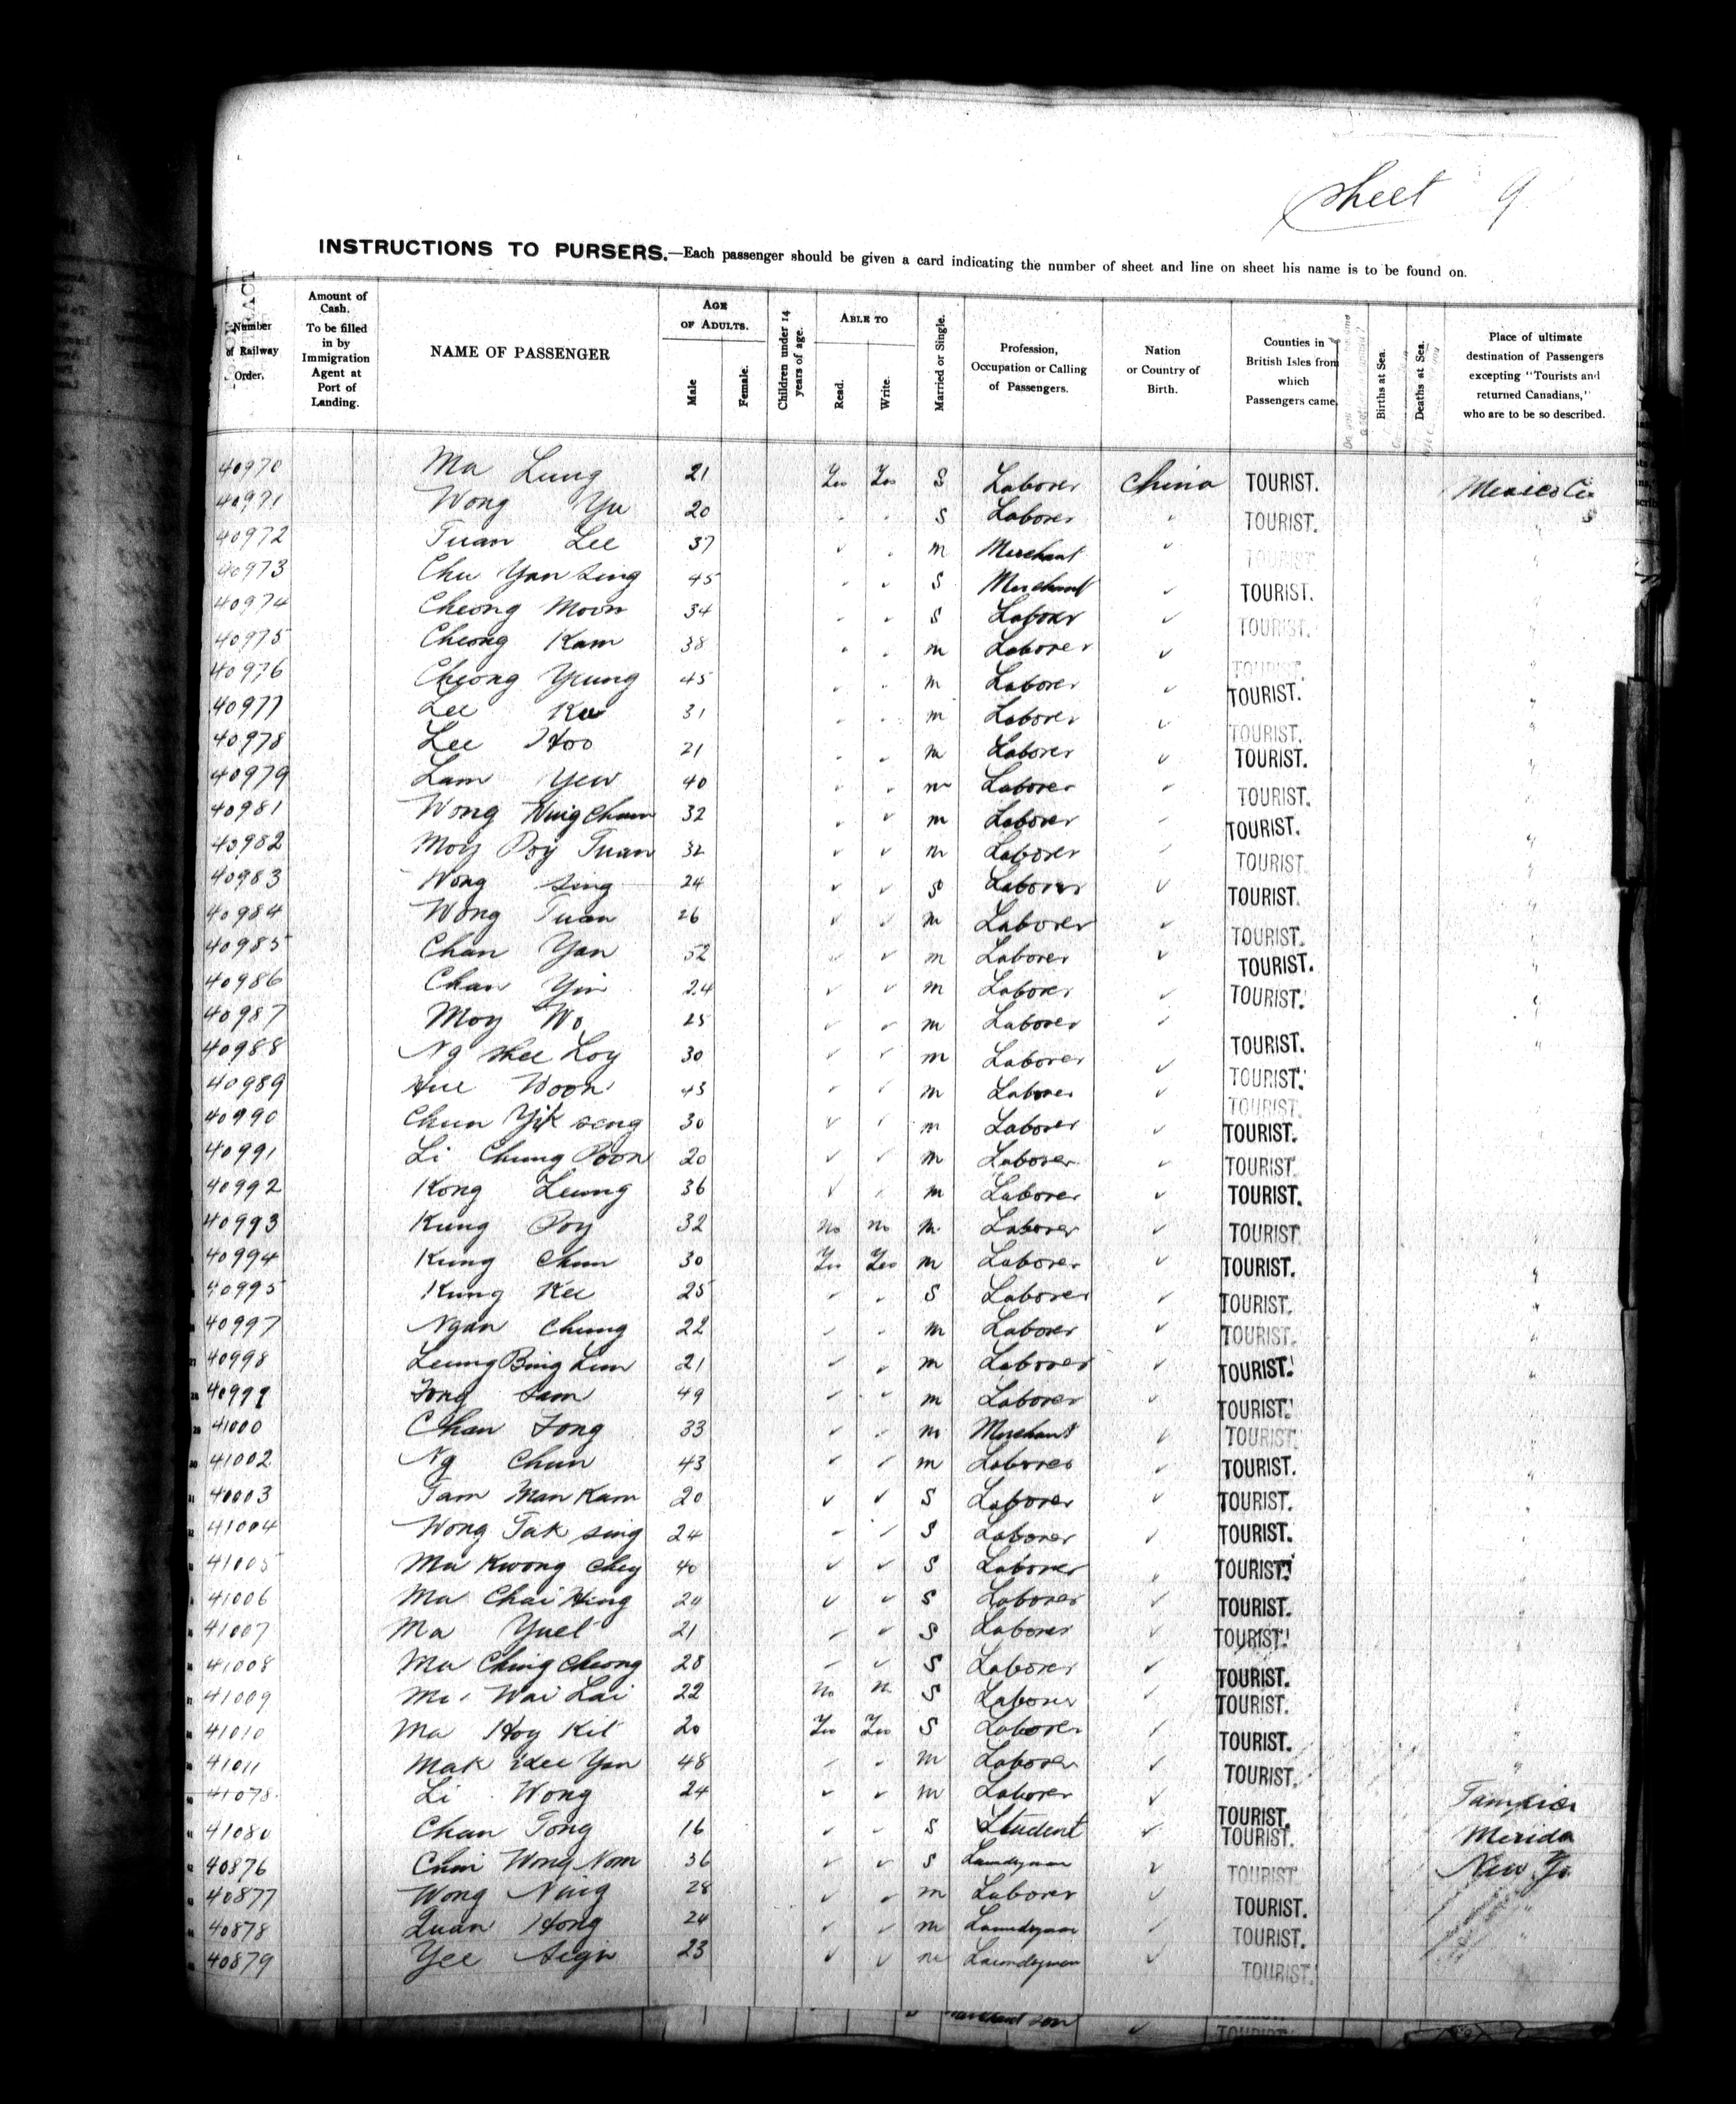 Sheet 9
INSTRUCTIONS TO PURSERS.—Each passenger should be given a card indicating the number of sheet and line on sheet his name is to be found on.
Number of Railway Order.
Amount of Cash. To be filled in by Immigration Agent at Port of Landing.
NAME OF PASSENGER
AGE OF ADULTS. Male Female.
Children under 14 years of age.
ABLE TO Read. Write.
Married or Single.
Profession, Occupation or Calling of Passengers.
Nation or Country of Birth.
Counties in British Isles from which Passengers came
Births at Sea.
Deaths at Sea.
Place of ultimate destination of Passengers excepting "Tourists and returned Canadians," who are to be so described.
40970 Ma Lung 21 Yes Yes S Laborer China TOURIST. Mexico
40971 Wong Yu 20 S Laborer TOURIST.
40972 Tuan Lee 37 m Merchant TOURIST
40973 Chu Yan Sing 45 S Merchant TOURIST.
40974 Cheong Moon 34 S Laborer TOURIST.
40975 Cheong Kam 38 m Laborer TOURIST.
40976 Cheong Yeung 45 m Laborer TOURIST.
40977 Lee 31 m Laborer TOURIST.
40978 Lee Hoo 21 m Laborer TOURIST.
40979 Lam Yew 40 m Laborer TOURIST.
40981 Wong Wing Chum 32 m Laborer TOURIST.
40982 Moy Poy Tuan 32 m Laborer TOURIST.
40983 Wong Sing 24 S Laborer TOURIST.
40984 Wong Tuan 26 m Laborer TOURIST.
40985 Chan Yan 52 m Laborer TOURIST.
40986 Chan Yin 24 m Laborer TOURIST.
40987 Moy Wo 25 m Laborer TOURIST.
40988 Ng Shee Loy 30 m Laborer TOURIST.
40989 Hue Woon 43 m Laborer TOURIST.
40990 Chun Yik Seng 30 m Laborer TOURIST.
40991 Li Chung Poon 20 m Laborer TOURIST
40992 Kong Leung 36 m Laborer TOURIST.
40993 Kung Poy 32 No No m Laborer TOURIST
40994 Kung Chun 30 Yes Yes m Laborer TOURIST.
40995 Kung Kee 25 S Laborer TOURIST.
40997 Ngan Chung 22 m Laborer TOURIST.
40998 Leung Bing Lun 21 m Laborer TOURIST.
40999 Fong Sam 49 m Laborer TOURIST.
41000 Chan Fong 33 m Merchant TOURIST.
41002 Ng Chun 43 m Laborer TOURIST.
40003 Tam Man Kam 20 S Laborer TOURIST.
41004 Wong Tak Sing 24 S Laborer TOURIST.
41005 Ma Kwong 40 S Laborer TOURIST.
41006 Ma Chai Hing 24 S Laborer TOURIST.
41007 Ma Yuet 21 S Laborer TOURIST.
41008 Ma Ching Cheong 28 S Laborer TOURIST.
41009 Ma Wai Lai 22 No No S Laborer TOURIST.
41010 Ma Hoy Kit 20 Yes Yes S Laborer TOURIST.
41011 Mak Yan 48 m Laborer TOURIST.
41078 Li Wong 24 m Laborer TOURIST.
41080 Chan Tong 16 S Student TOURIST. Merida
40876 Chin Wong Nom 36 S Laundryman TOURIST New Yo
40877 Wong Ning 28 m Laborer TOURIST.
40878 Quan Hong 24 m Laundryman TOURIST.
40879 Yee 23 m Laundryman TOURIST.
merchant son